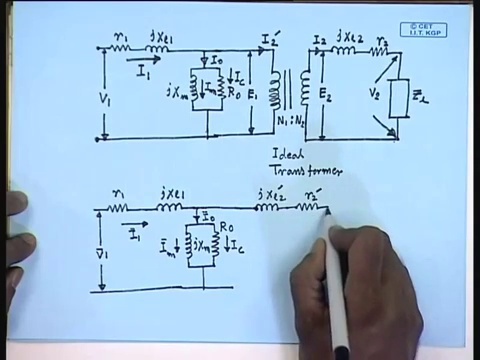 © CET
I.I.T. KGP
r1 jxl1 I2' I2 jxl2 r2
I1 I0
V1 jxm Im Ic R0 E1 E2 V2 ZL
N1 : N2
Ideal
Transformer
r1 jxl1 jxl2' r2'
I̅1 I̅0 R0
V̅1 I̅m jxm Ic